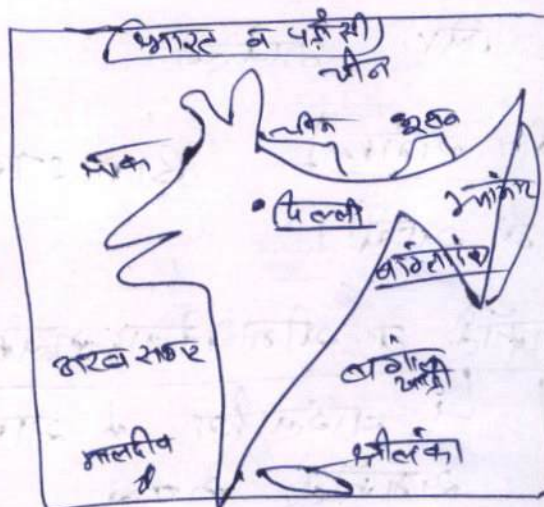 भारत व पड़ौसी
चीन
चीन
भूटान
पाक
म्यांमार
दिल्ली
बांग्लादेश
अरब सागर
बंगाल
खाड़ी
मालदीव
श्रीलंका